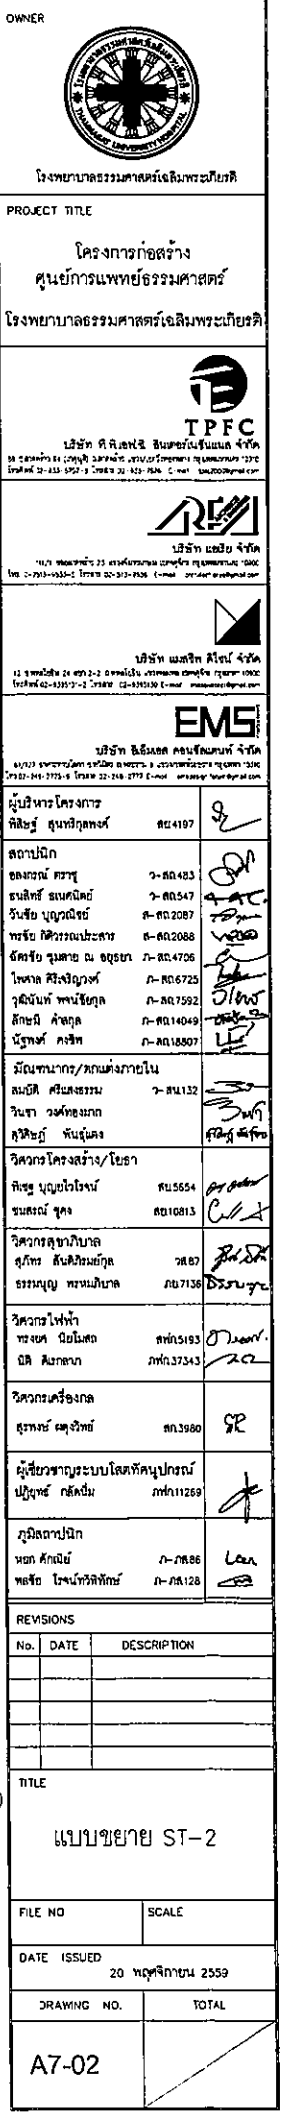 OWNER
โรงพยาบาลธรรมศาสตร์เฉลิมพระเกียรติ
THAMMASAT UNIVERSITY HOSPITAL
โรงพยาบาลธรรมศาสตร์เฉลิมพระเกียรติ
PROJECT TITLE
โครงการก่อสร้าง
ศูนย์การแพทย์ธรรมศาสตร์
โรงพยาบาลธรรมศาสตร์เฉลิมพระเกียรติ
TPFC
บริษัท ที.พี.เอฟ.ซี. อินเตอร์เนชั่นแนล จำกัด
บริษัท แมสริท ดีไซน์ จำกัด
EMS
บริษัท อีเอ็มเอส คอนซัลแตนท์ จำกัด
ผู้บริหารโครงการ
พิสิษฐ์ สุนทริกุลพงศ์ สย4197
สถาปนิก
ว-สถ.483
ธนสิทธิ์ ธเนศนิตย์ ว-สถ.547
วันชัย บุญวณิชย์ ส-สถ.2087
พรชัย กิติวรรณประสาร ส-สถ.2088
ฉัตรชัย ขุมตาย ณ อยุธยา ภ-สถ.4706
ไพศาล ศิริเจริญวงศ์ ภ-สถ.6725
วุฒินันท์ พจน์ชัยกุล ภ-สถ.7592
ลักษมี คำสกุล ภ-สถ.14049
นัฐพงศ์ คงชีพ ภ-สถ.18807
มัณฑนากร/ตกแต่งภายใน
สมบัติ ศรีแสงธรรม ว-สน.132
วินชา วงศ์ทองมาก
สุวิสิษฎ์ พันธุ์แตง
วิศวกรโครงสร้าง/โยธา
พิเชฐ บุญยไวโรจน์ สย.5654
ชนสรณ์ ชูคง สย.10813
วิศวกรสุขาภิบาล
สุภัทร สันติภิรมย์กุล วส.87
ธรรมนูญ พรหมภิบาล ภย.7136
วิศวกรไฟฟ้า
ทรงยศ นิยโมสถ สฟก.5193
นิติ ดิเรกลาภ ภฟก.37343
วิศวกรเครื่องกล
สุรพงษ์ ผดุงวิทย์ สก.3980
ผู้เชี่ยวชาญระบบโสตทัศนูปกรณ์
ปฏิยุทธ์ กลัดนิ่ม ภฟก.11269
ภูมิสถาปนิก
หยก ศักณีย์ ภ-ภส.86
พลชัย โรจน์ทวีพิทักษ์ ภ-ภส.128
REVISIONS
No. DATE DESCRIPTION
TITLE
แบบขยาย ST-2
FILE NO SCALE
DATE ISSUED
20 พฤศจิกายน 2559
DRAWING NO. TOTAL
A7-02